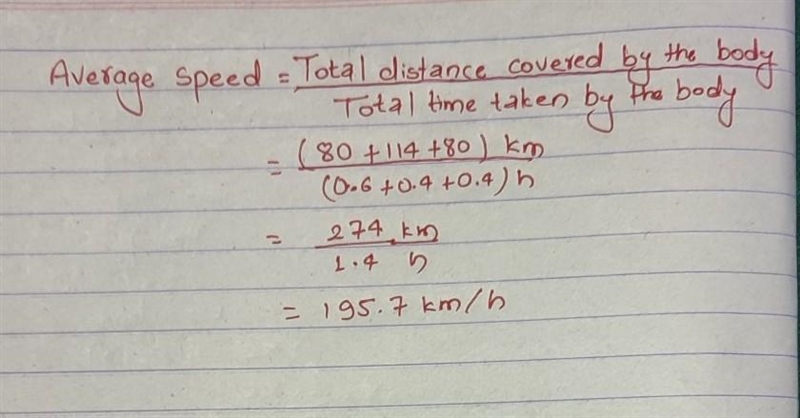 Average speed = Total distance covered by the body
Total time taken by the body
= (80 + 114 + 80) km
(0.6 + 0.4 + 0.4) h
= 274 km
1.4 h
= 195.7 km/h